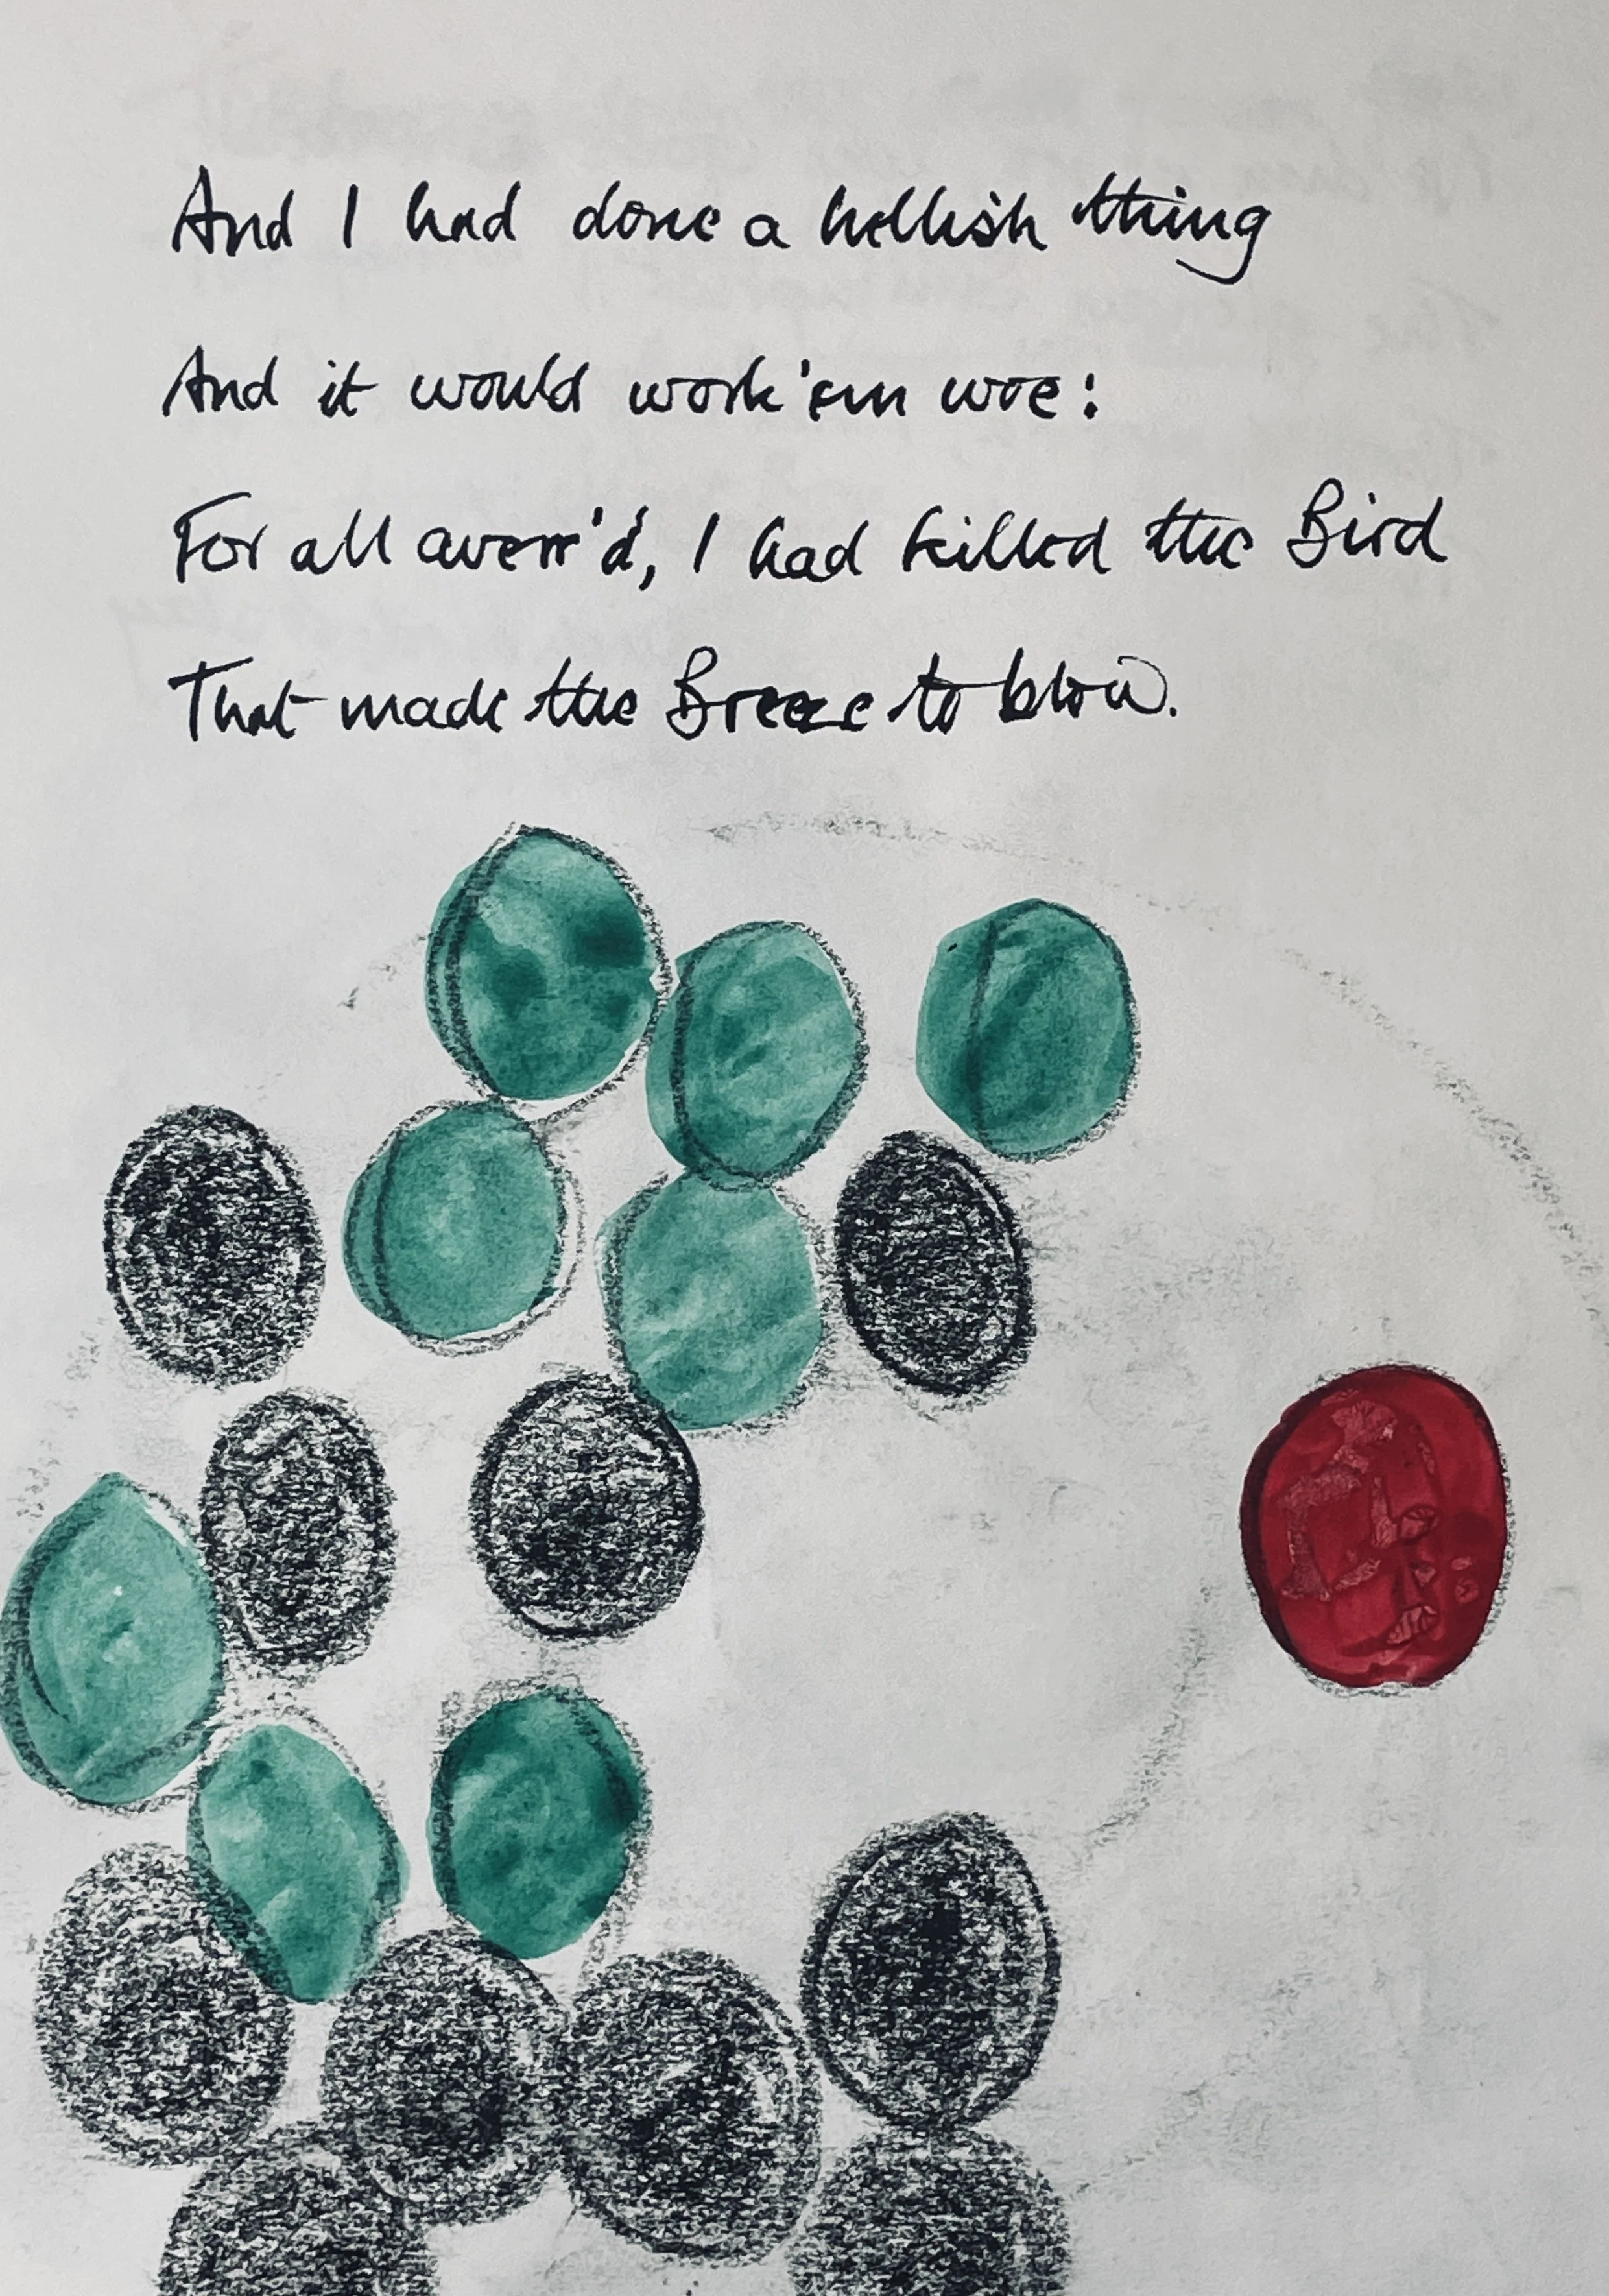 And I had done a hellish thing
And it would work 'em woe:
For all averr'd, I had killed the Bird
That made the Breeze to blow.